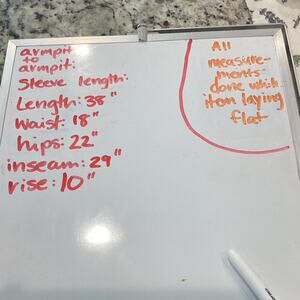 armpit
to
armpit:
Sleeve length:
Length: 38"
Waist: 18"
hips: 22"
inseam: 29"
rise: 10"
All
measure-
ments
done which
item laying
flat